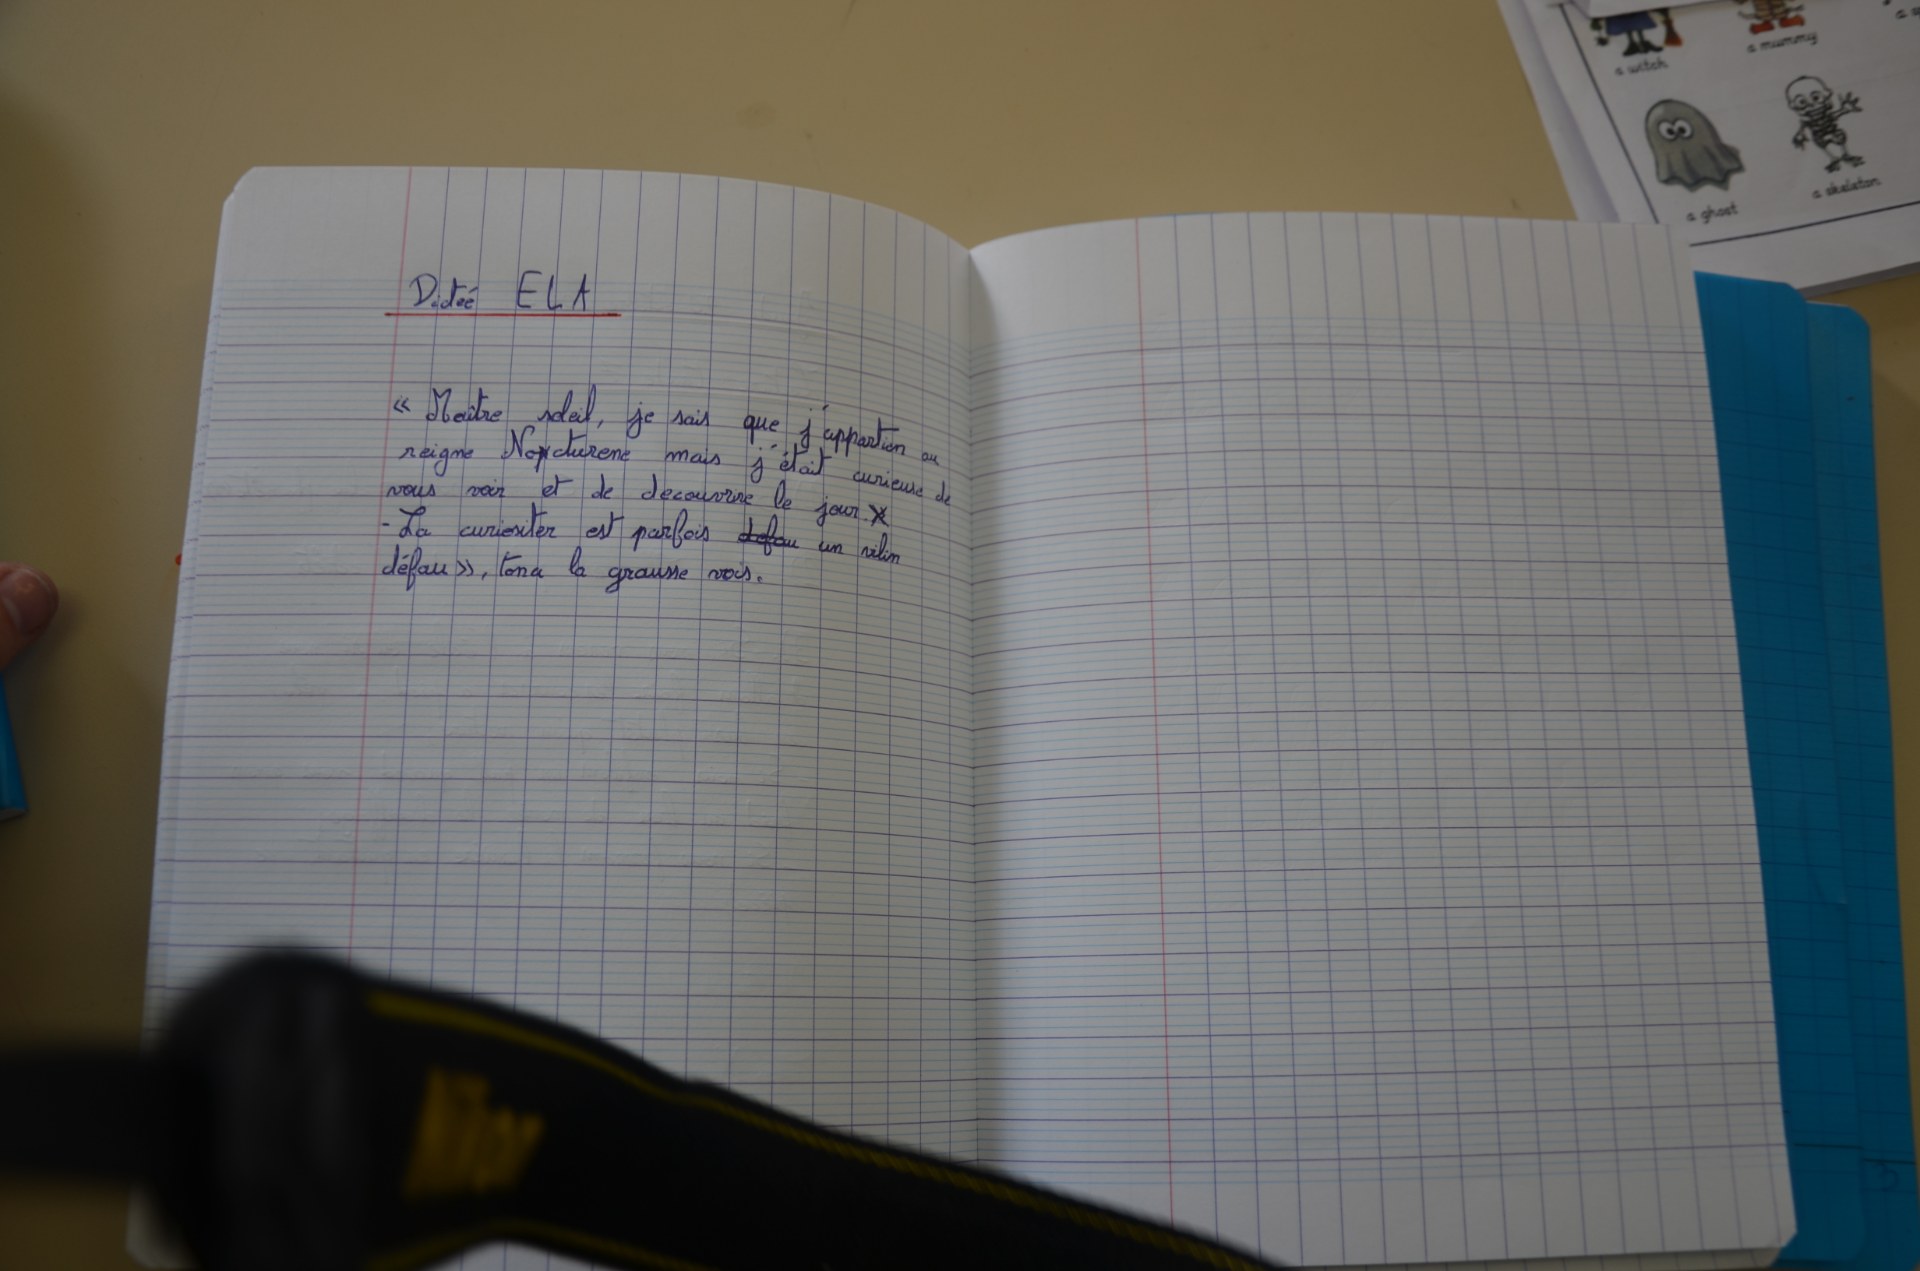 Dictée ELA
« Maître soleil, je sais que j'appartien au
reigne Nocturene mais j'était curieuse de
vous voir et de decouvrire le jour.
- La curiositer est parfois defau un vilin
défau », tona la grausse vois.
a witch
a mummy
a ghost
a skeleton